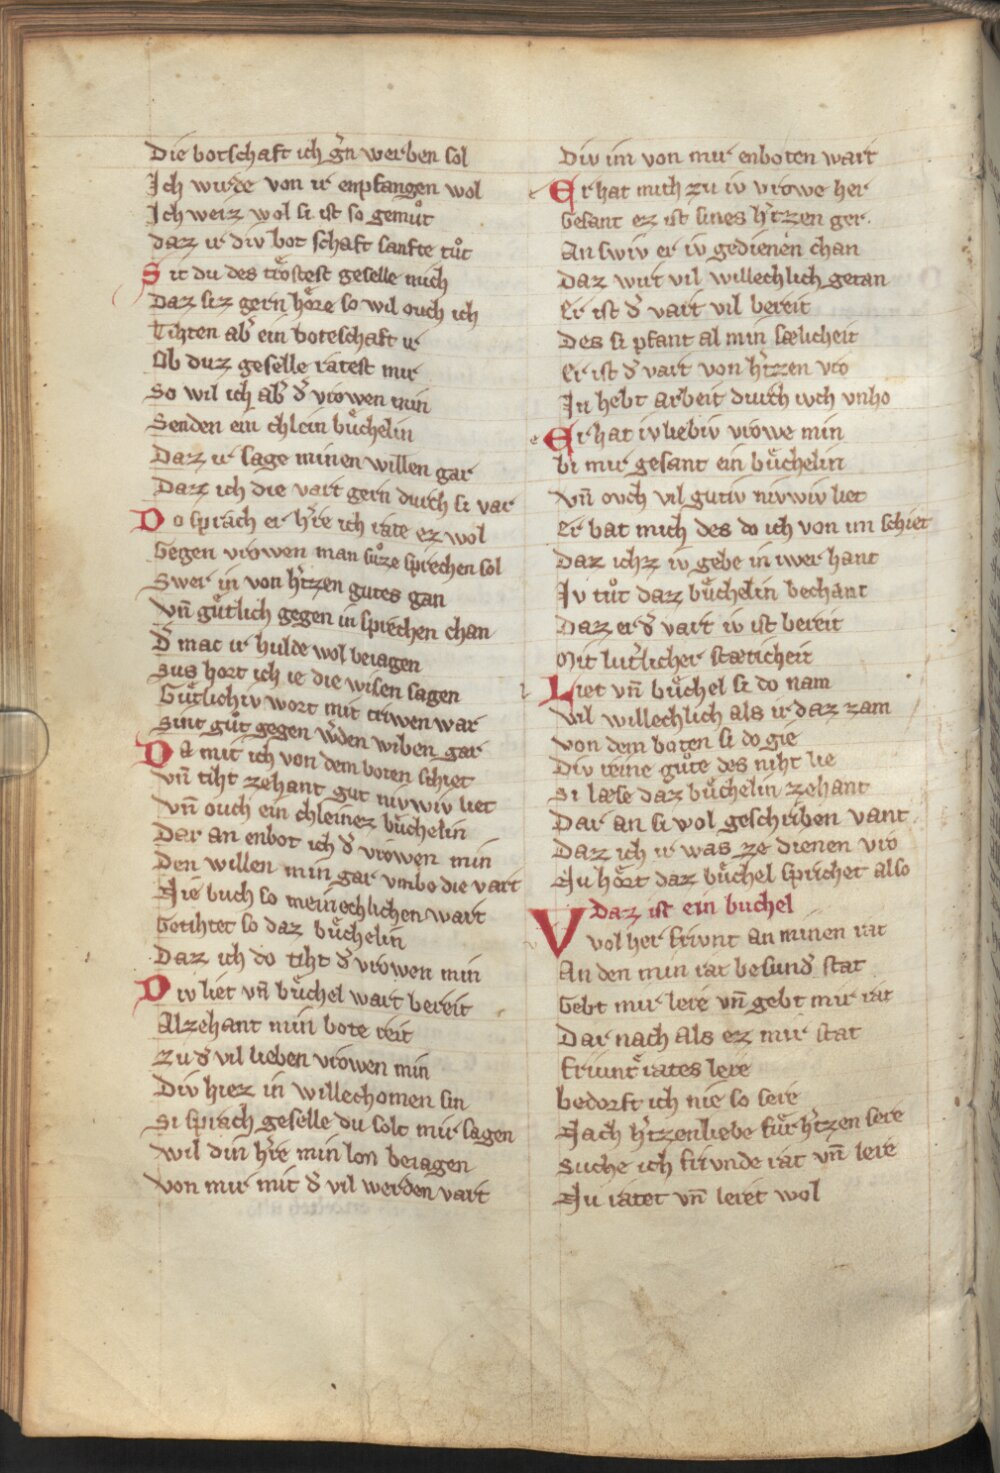 Die botschaft ich g̾n werben sol
Ich wurde von ir enpfangen wol
Ich weiz wol si ist so gemuͦt
daz ir div bot schaft sanfte tuͦt
Sit du des troͤstest geselle mich
Daz siz gern hoͤre so wil ouch ich
Tihten ab̾ ein boteschaft ir
Ob duz geselle ratest mir
So wil ich ab̾ d̾ vrowen min
Senden ein chlein buͤchelin
Daz ir sage minen willen gar
Daz ich die vart gern durch si var
Do sprach er h̾re ich rate ez wol
Gegen vrowen man suͦze sprechen sol
Swer in von h̾tzen gutes gan
Vn̄ guͤtlich gegen in sprechen chan
D̾ mac ir hulde wol beiagen
Sus hort ich ie die wisen sagen
Guͤtlichiv wort mit triwen war
Sint guͦt gegen w̾den wiben gar
Da mit ich von dem boten schiet
Vn̄ tiht zehant gut nivwiv liet
Vn̄ ouch ein chleinez buͤchelin
Dar an enbot ich d̾ vrowen min
Den willen min gar vmbe die vart
Nie buch so meinechlichen wart
Getihtet so daz buͤchelin
Daz ich do tiht d̾ vrowen min
Div liet vn̄ buͤchel wart bereit
Alzehant min bote reit
Zu d̾ vil lieben vrowen min
Div hiez in willechomen sin
Si sprach geselle du solt mir sagen
Wil din h̾re min lon beiagen
Von mir mit d̾ vil werden vart
Div im von mir enboten wart
Er hat mich zu iv vrowe her
Gesant ez ist sines h̾tzen ger.
An swiv er iv gedienen chan
Daz wirt vil willechlich getan
Er ist d̾ vart vil bereit
Des si pfant al min sælicheit
Er ist d̾ vart von h̾tzen vro
In hebt arbeit durch ivch vnho
Er hat iv liebiv vrowe min
bi mir gesant ein buͤchelin
Vn̄ ovch vil gutiv nivwiv liet
Er bat mich des do ich von im schiet
Daz ichz iv gebe in iwer hant
Iv tuͦt daz buͤchelin bechant
Daz er d̾ vart iv ist bereit
Mit lut̾licher stæticheit
Liet vn̄ buͤchel si do nam
Vil willechlich als ir daz zam
Von dem boten si do gie
Div reine guͤte des niht lie
Si læse daz buͤchelin zehant
Dar an si wol geschriben vant
Daz ich ir was ze dienen vro
Nu hoͤrt daz buͤchel sprichet also
Daz ist ein buchel
Vvol her frivnt an minen rat
An den min rat besund̾ stat
Gebt mir lere vn̄ gebt mir rat
Dar nach als ez mir stat
frivnt rates lere
bedorft ich nie so sere
Nach h̾tzenliebe fuͤr h̾tzen sere
Suche ich frivnde rat vn̄ lere
Nu ratet vn̄ leret wol